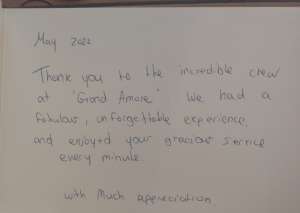 May 2022
Thank you to the incredible crew
at "Grand Amore" We had a
fabulous, unforgettable experience,
and enjoyed your gracious service
every minute.
with Much appreciation